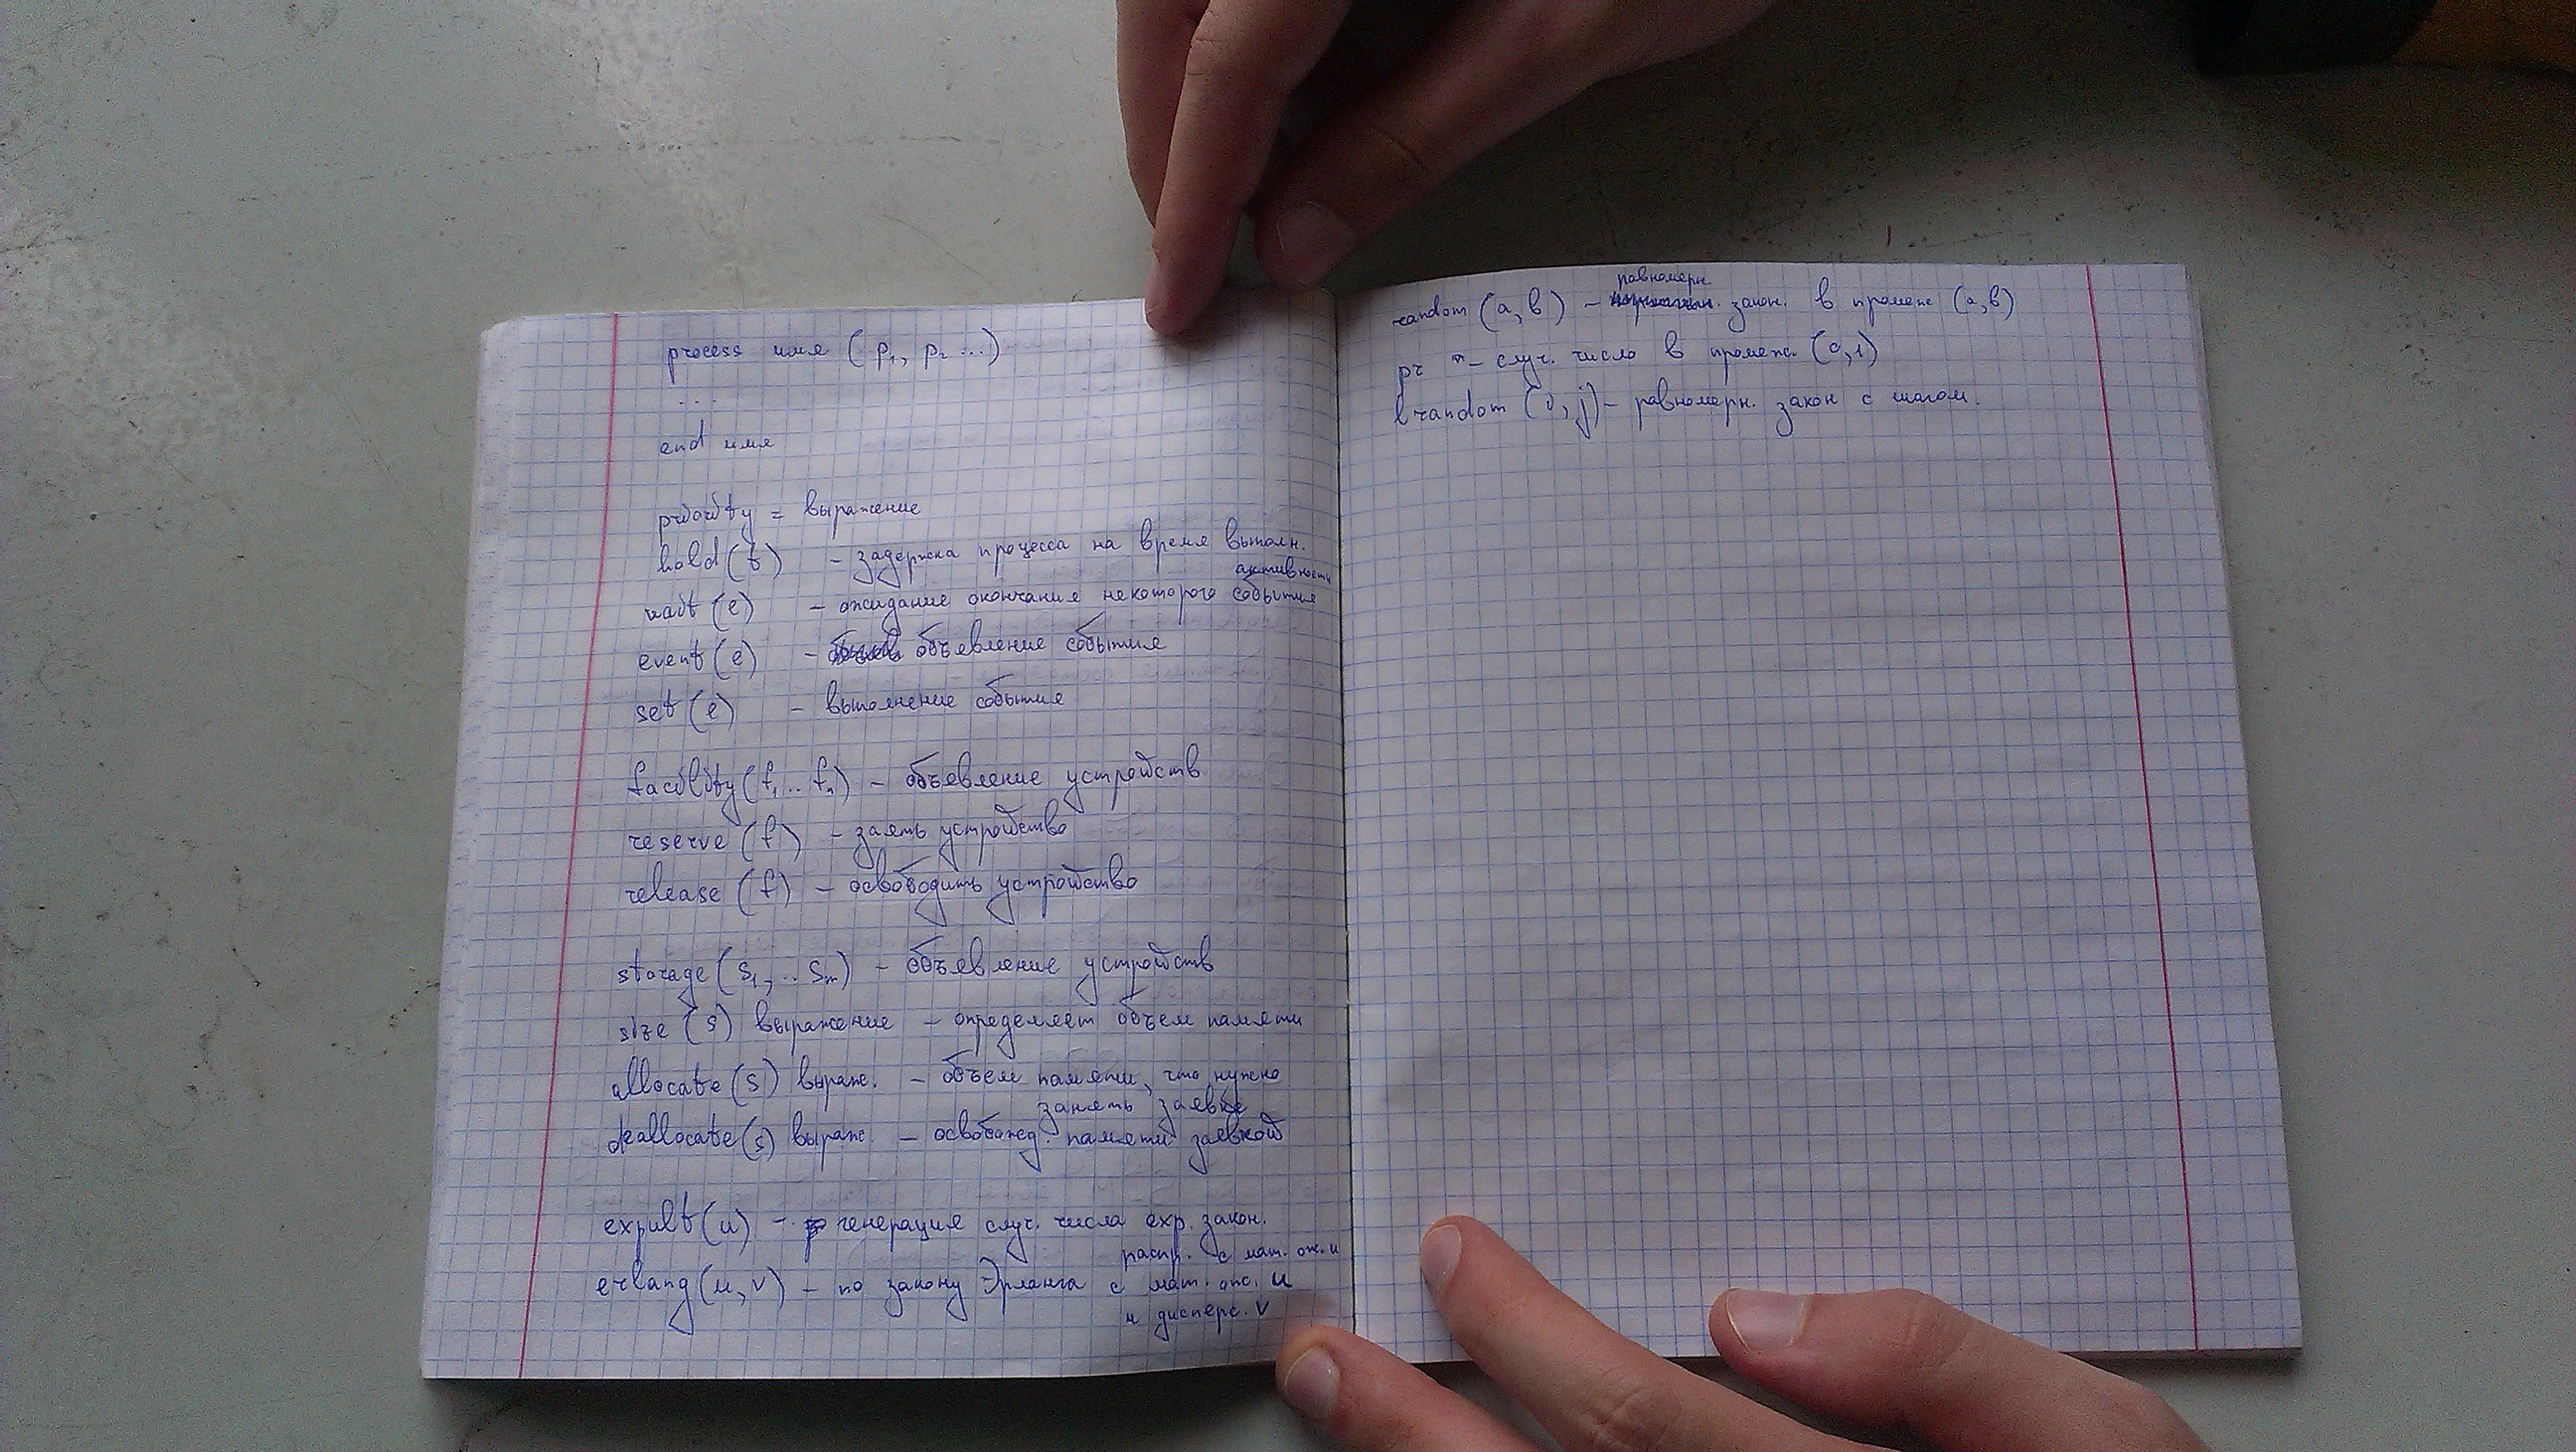 process имя (p₁, p₂ ...)
...
end имя
priority = выражение
hold(t) – задержка процесса на время выполн.
активности
wait(e) – ожидание окончания некоторого события
event(e) – объевление события
set(e) – выполнение события
facility(f₁.. fₙ) – объевление устройств
reserve(f) – заять устройство
release(f) – освободить устройство
storage(s₁,.. sₘ) – объевление устройств
size(s) выражение – определяет объем памяти
allocate(s) выраж. – объем памяти, что нужно
занять заявке
deallocate(s) выраж. – освобожд. памяти заявкой
expult(u) – генерация случ. числа exp. закон.
распр. с мат. ож. u
erlang(u, v) – по закону Эрланга с мат. ож. u
и дисперс. v
равномерн.
random (a, b) – закон. в промеж (a, b)
– случ. число в промеж. (0, 1)
lrandom (i, j) – равномерн. закон с шагом.